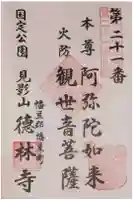 第二十一番
本尊阿弥陀如来
火防観世音菩薩
国定公園 見影山 徳林寺
幡豆郡幡豆町